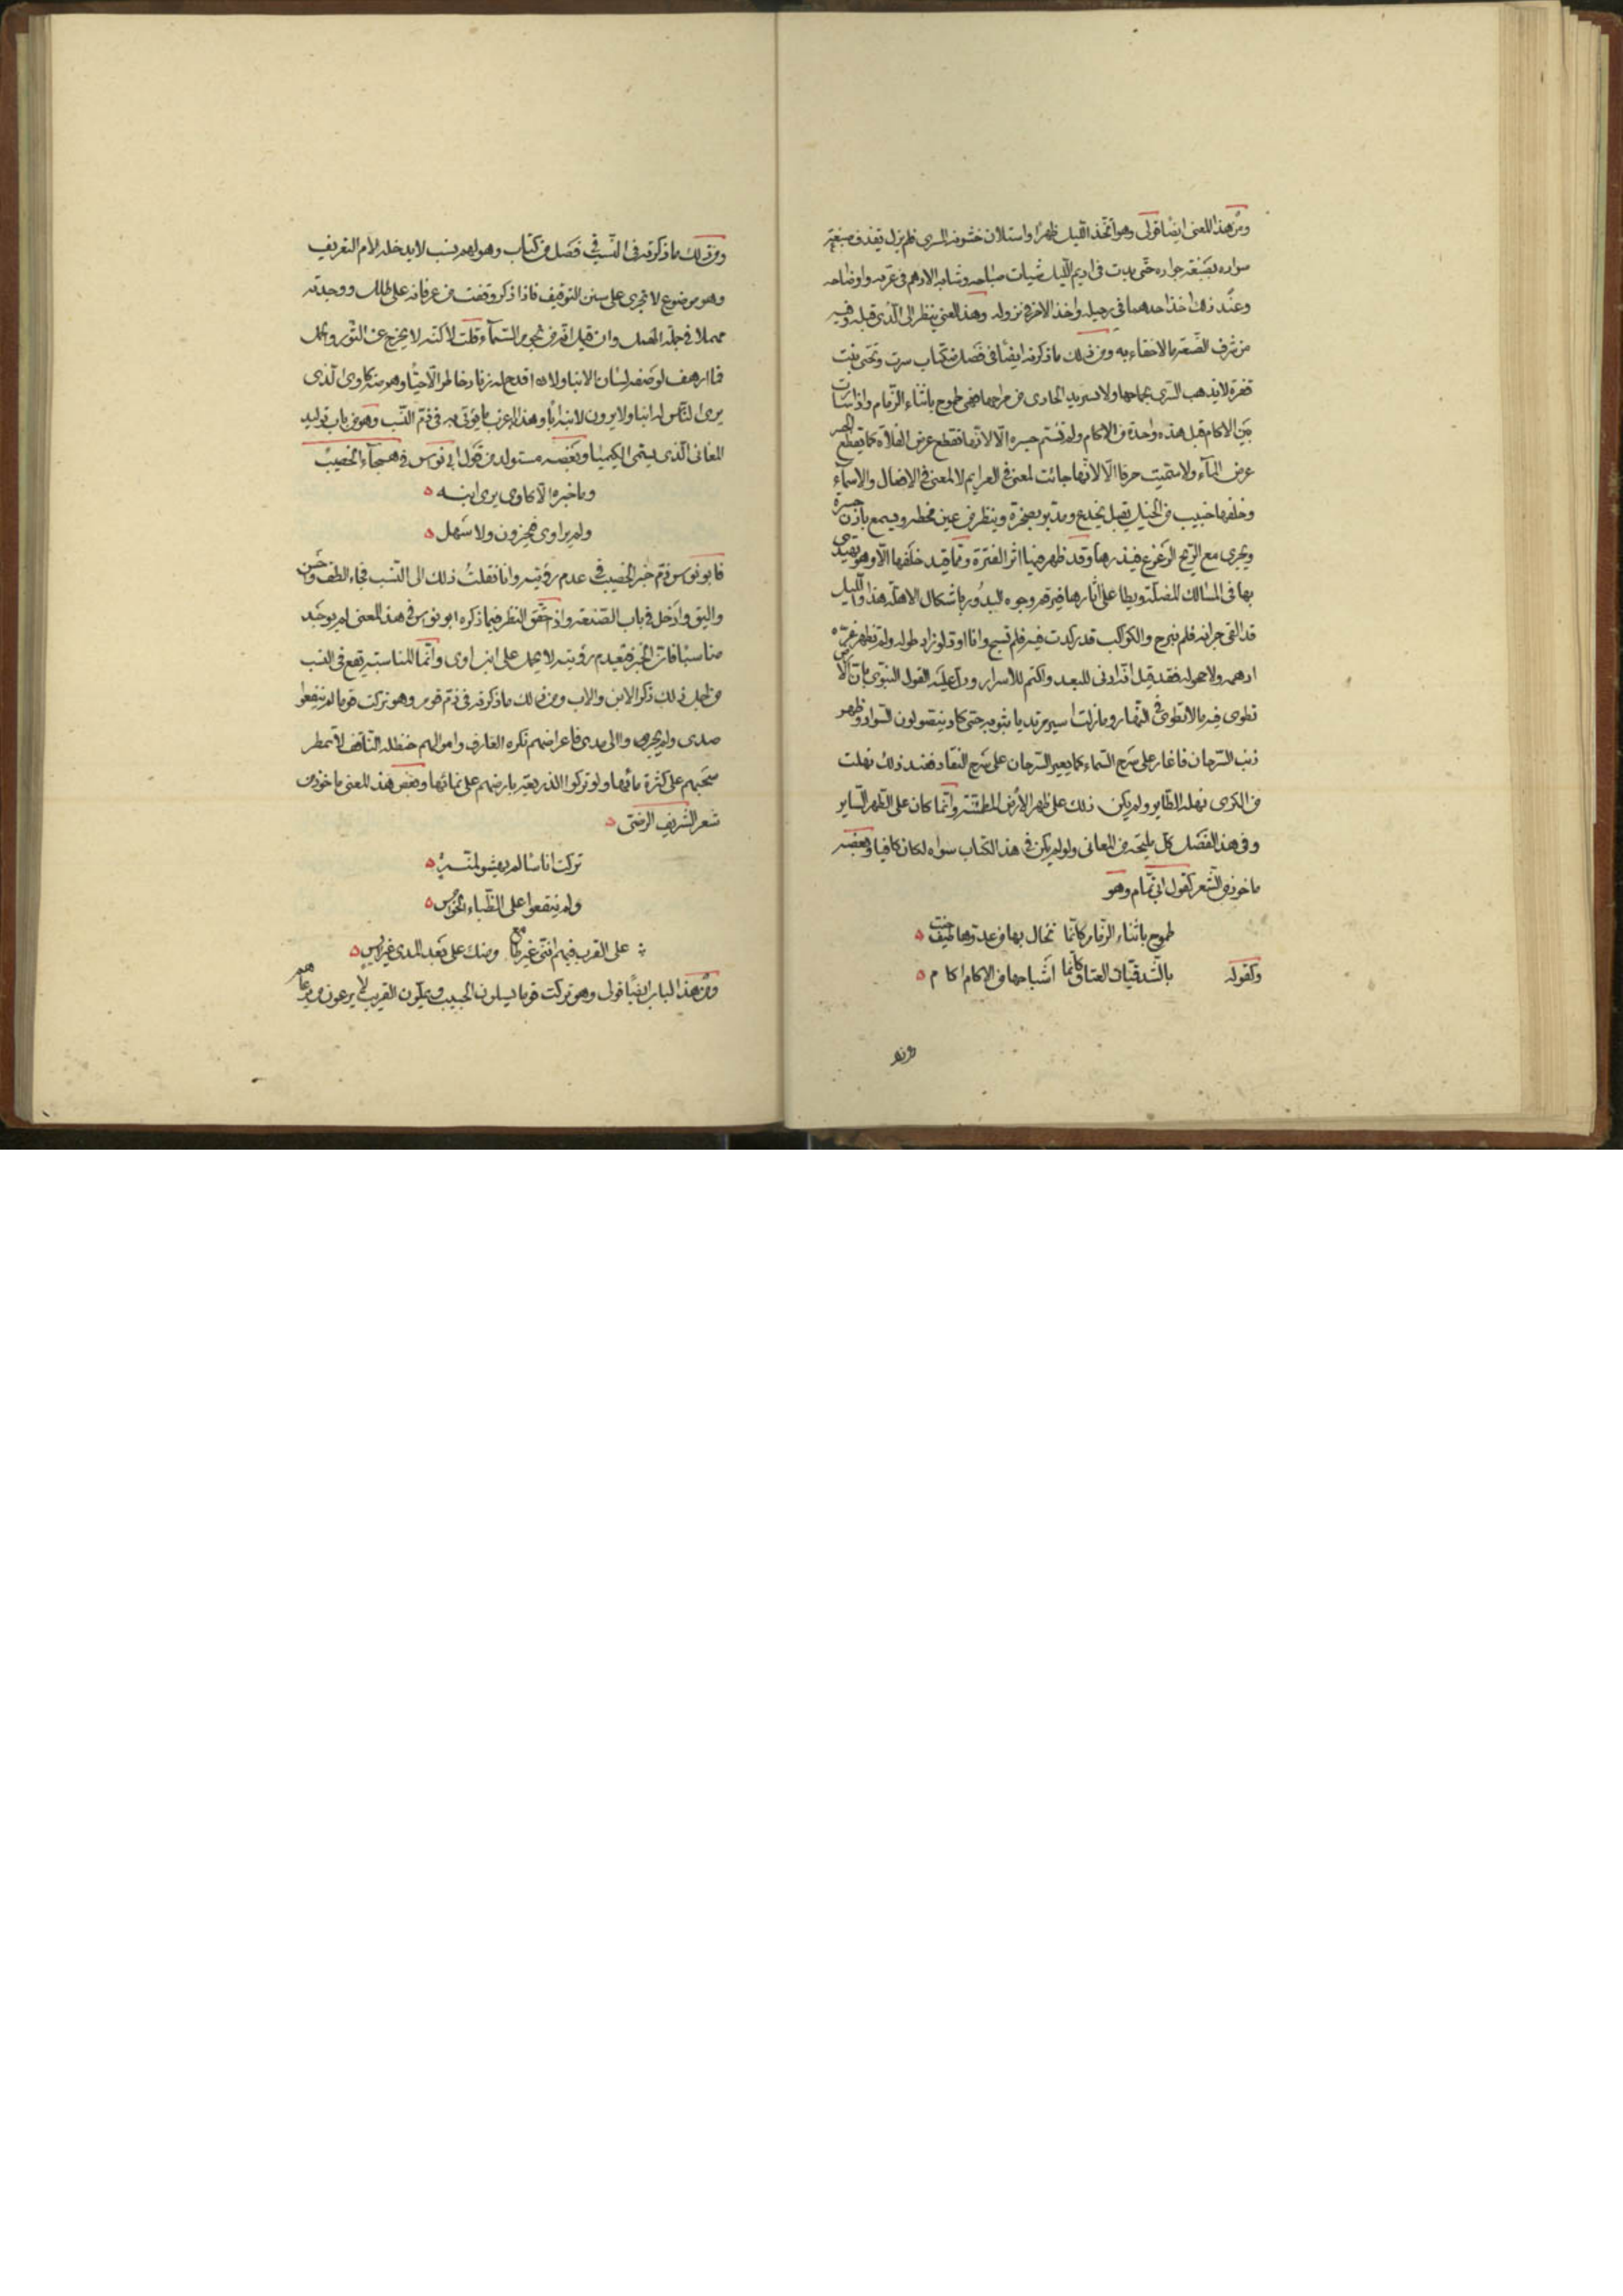 ومن هذا المعنى ايضا قولى وهو اتخذ الليل ظهرا واستلان خشونة السرى فلم يزل يقذف صبغة
سواده بصبغة جواده حتى بدت فى اديم الليل شيات صباحه وشابه الادهم فى غرته واوضاحه
وعند ذلك اخذ احدهما فى رحيله واخذ الاخر فى نزوله وهذا المعنى ينظر الى الذى قبله وفيه
من شرف الصنعة ما لا خفاء به ومن ذلك ما ذكرته ايضا فى فصل من كتاب سرت وتحتى بنت
قفرة لا يذهب السرى بجماحها ولا تستزيد الحادى من مراحها فهى طموح باثناء الزمام واذا سارت
بين الاكام قيل هذه واحدة من الاكام ولم تسم جسرة الا لانها تقطع عرض الفلاة كما يقطع الجسر
عرض الماء ولا سميت حرفا الا لانها جاءت لمعنى فى العزايم لا لمعنى فى الافعال والاسماء
وخلفها جنيب من الخيل يقبل بجذع ويدبر بصخرة وينظر من عين جحظة ويسمع باذن حشرة
ويجرى مع الريح الزعزع فيذرها وقد ظهر فيها اثر الفترة وما قيد خلفها الا وهو يهتدى
بها فى المسالك المضلة ويطا على اثارها فيرقم وجوه البدور باشكال الاهلة هذا والليل
قد القى جرانه فلم يبرح والكواكب قد ركدت فيه فلم تسبح وانا اود لو زاد طوله ولم تظهر غرة
ادهمه ولا حجوله فقد قيل انه ادنى للبعد واكتم للاسرار ودل عليه القول النبوى بان الارض
تطوى فيه ما لا تطوى فى النهار وما زلت اسير مرتديا بثوبه حتى كاد ينضو لون السواد وظهر
ذنب السرحان فاغار على سرح السماء كما يغير السرحان على سرح النقاد فعند ذلك نهلت
من الكرى نهلة الطاير ولم يكن ذلك على ظهر الارض المطمئنة وانما كان على الظهر الساير
وفى هذا الفصل كل مليحة من المعانى ولو لم يكن فى هذا الكتاب سواه لكان كافيا وبعضه
ماخوذ من الشعر كقول ابى تمام وهو
طموح باثناء الزمام كانما تخال بها من عدوها طيف جنة
وكقوله بالشدقميات العتاق كانما اشباحها من الاكام اكام
ومن ذلك ما ذكرته فى النسب فى فصل من كتاب وهو لهم نسب لا يدخله لام التعريف
وهو موضوع لا تجرى على سنن التوقيف فاذا ذكر وقفت من عرفانه على طلل ووجدته
مهملا فى جملة الهمل وان قيل انه من نجم السماء قلت لكنه لا يخرج عن الثور والحمل
فما ارهف لوصفه لسان الانباء ولا اقدح له زناد خاطر الا خبا وهو منه كاوى الذى
يرى الناس له ابنا ولا يرون لابنه ابا وهذا اغرب ما يؤتى به فى ذم النسب وهو من باب توليد
المعانى الذى يسمى الكيميا وبعضه مستولد من قول ابى نواس فى هجاء الخصيب
وما خبزه الا كاوى يرى ابنه
ولم ير اوى فى حزون ولا سهل
فابو نواس ذم خبز الخصيب فى عدم رؤيته وانا نقلت ذلك الى النسب فجاء الطف واحسن
واليق وادخل فى باب الصنعة واذ حقق النظر فيما ذكره ابو نواس فى هذا المعنى لم يوجد
مناسبا فان الخبز فى عدم رؤيته لا يحمل على ابن اوى وانما المناسبة تقع فى النسب
من اجل ذلك ذكر الابن والاب ومن ذلك ما ذكرته فى ذم قوم وهو تركت قوما لم ينقعوا
صدى ولم يجروا الى مدى فاعراضهم نكرة المعارف واموالهم حنظلة الناقف لا تمطر
سحبهم على كثرة مائها ولو تركوا الذريعة بارضهم على نمائها وبعض هذا المعنى ماخوذ من
شعر الشريف الرضى
تركت اناسا لم يهشوا لمنة
ولم ينقعوا على الظماء الخوامس
على القرب فيهم اننى غير طامع ومنك على بعد المدى غير ايس
ومن هذا الباب ايضا قولى وهو تركت قوما يسلون الحبيب ويملون القريب لا يرعون من رعاهم
ومن